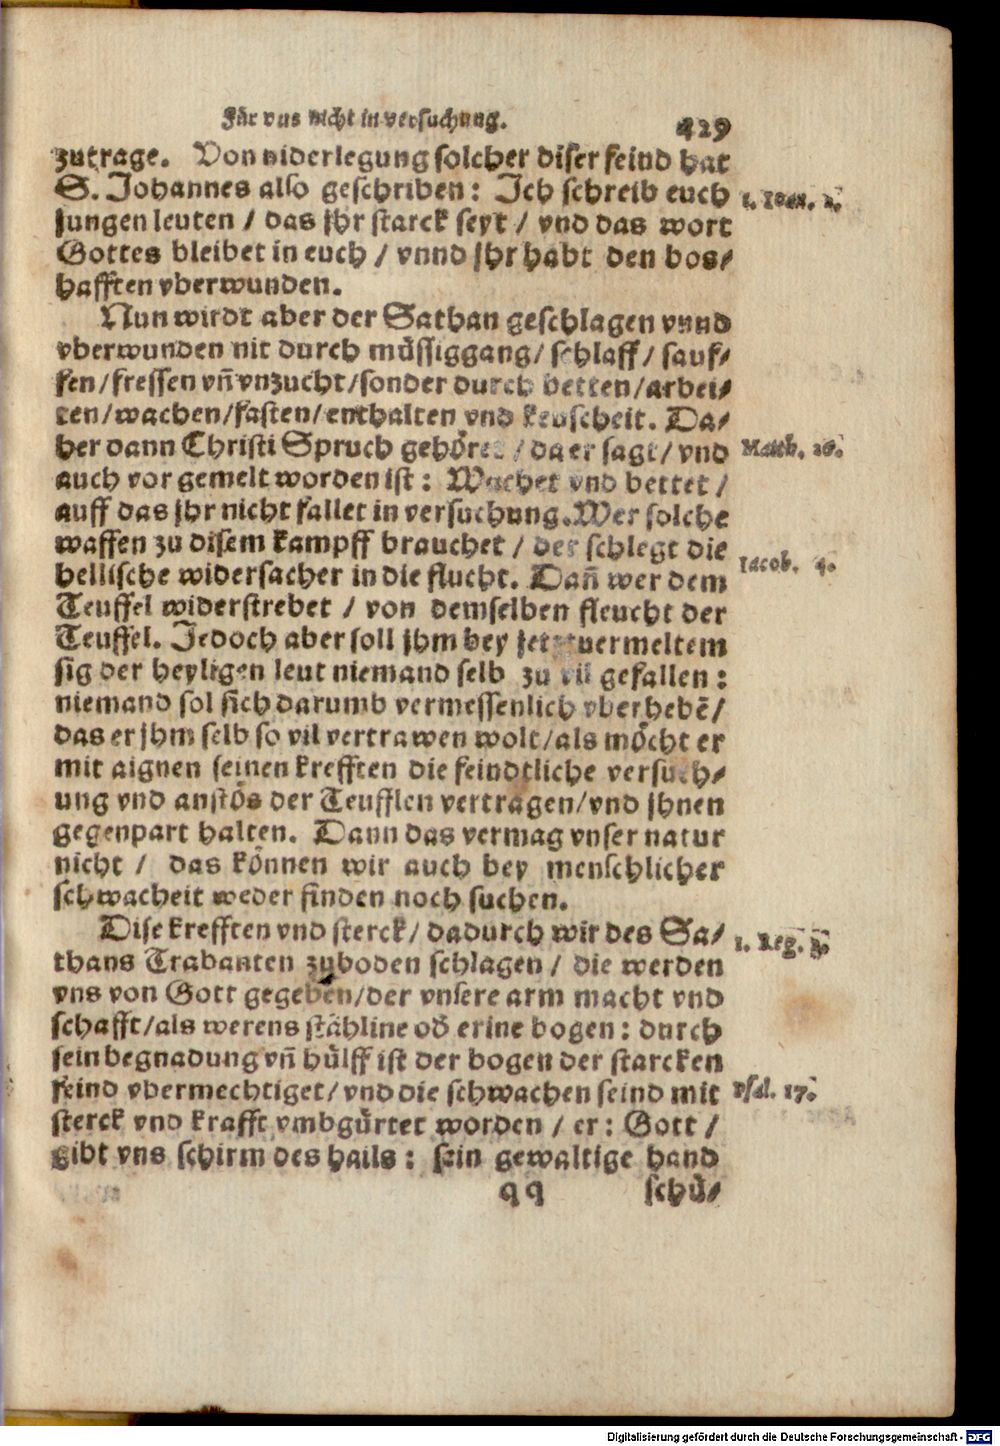 Für vns nicht in versuchung. 429
zutrage. Von niderlegung solcher diser feind hat
S. Johannes also geschriben: Ich schreib euch
jungen leuten / das jhr starck seyt / vnd das wort
Gottes bleibet in euch / vnnd jhr habt den bos⸗
hafften vberwunden.
1. Ioan. 2.
Nun wirdt aber der Sathan geschlagen vnnd
vberwunden nit durch müssiggang/ schlaff/ sauf⸗
fen/fressen vñ vnzucht/sonder durch betten/arbei⸗
ten/wachen/fasten/enthalten vnd keuscheit. Da⸗
her dann Christi Spruch gehöret / da er sagt/ vnd
auch vor gemelt worden ist: Wachet vnd bettet /
auff das jhr nicht fallet in versuchung. Wer solche
waffen zu disem kampff brauchet / der schlegt die
hellische widersacher in die flucht. Dañ wer dem
Teuffel widerstrebet / von demselben fleucht der
Teuffel. Jedoch aber soll jhm bey jetztuermeltem
sig der heyligen leut niemand selb zu vil gefallen:
niemand sol sich darumb vermessenlich vberhebē/
das er jhm selb so vil vertrawen wolt/als möcht er
mit aignen seinen krefften die feindtliche versuch⸗
ung vnd anstös der Teufflen vertragen/vnd jhnen
gegenpart halten. Dann das vermag vnser natur
nicht / das können wir auch bey menschlicher
schwacheit weder finden noch suchen.
Matth. 26.
Iacob. 4.
Dise krefften vnd sterck/ dadurch wir des Sa⸗
thans Trabanten zuboden schlagen / die werden
vns von Gott gegeben/der vnsere arm macht vnd
schafft/als werens stähline od̄ erine bogen: durch
sein begnadung vñ hülff ist der bogen der starcken
feind vbermechtiget/ vnd die schwachen seind mit
sterck vnd krafft vmbgürtet worden / er: Gott /
gibt vns schirm des hails: sein gewaltige hand
1. Reg. 2.
Psal. 17.
qq schü⸗
Digitalisierung gefördert durch die Deutsche Forschungsgemeinschaft - DFG